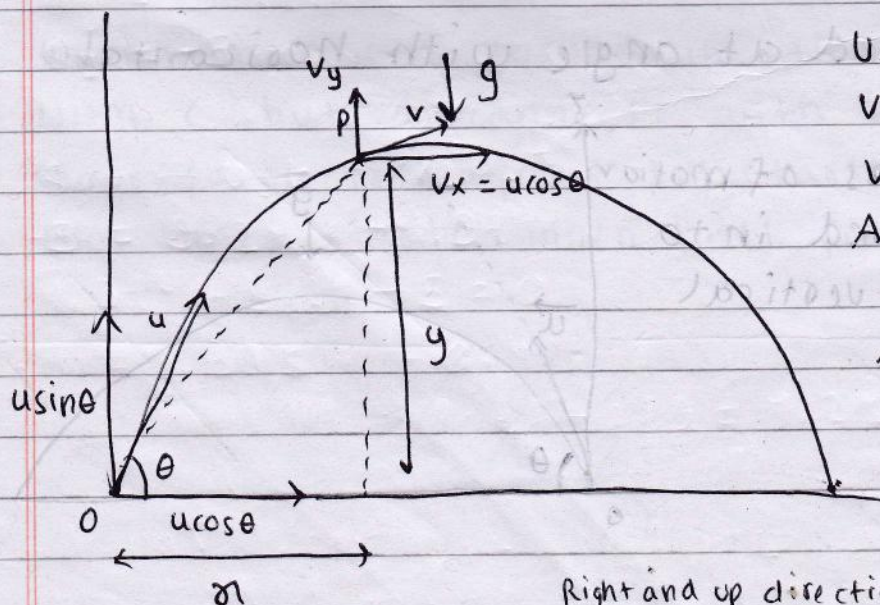 Vy
g
U
P
v
V
Vx = ucosθ
V
A
u
y
usinθ
θ
O
ucosθ
x
Right and up directi